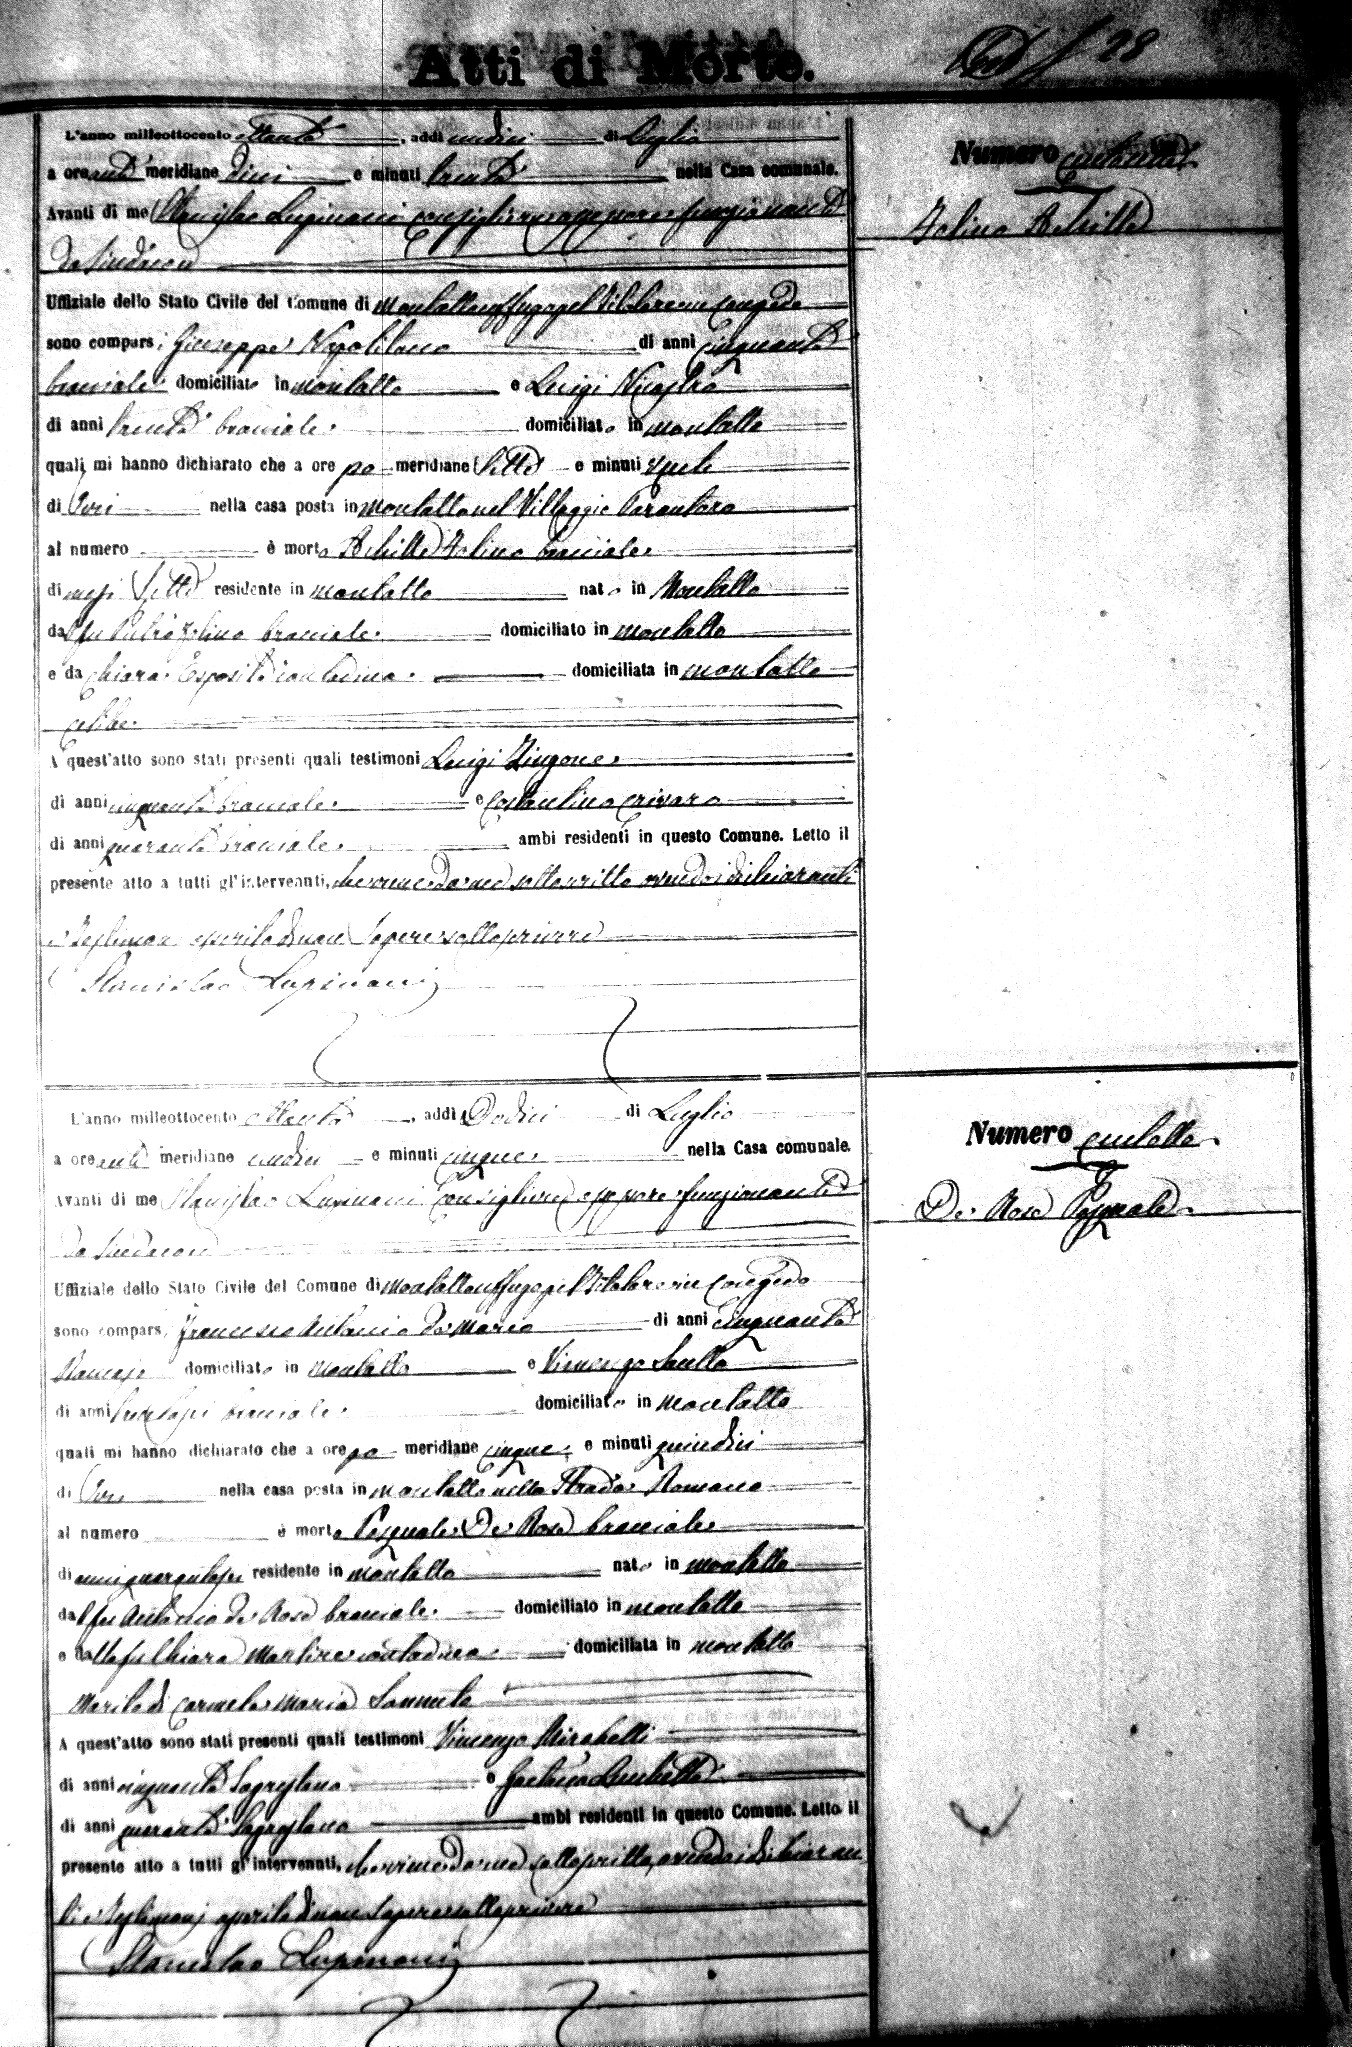 Atti di Morte.
28
L'anno milleottocento ottanta, addi undici di Luglio
a ore anti meridiane dieci e minuti trenta nella Casa comunale.
Avanti di me Stanislao Lupinacci consigliere assessore funzionante
da Sindaco
Uffiziale dello Stato Civile del Comune di Montalto uffugo pel Titolare in congedo
sono comparsi Giuseppe Napolitano di anni cinquanta
bracciale domiciliato in Montalto e Luigi Nicastro
di anni trenta bracciale domiciliato in Montalto
quali mi hanno dichiarato che a ore po meridiane sette e minuti venti
di Jeri nella casa posta in Montalto nel Villaggio Parantoro
al numero è morto Achille Folino bracciale
di mesi sette residente in Montalto nato in Montalto
dal fu Pietro Folino bracciale domiciliato in Montalto
e da Chiara Esposito contadina domiciliata in Montalto
celibe
A quest'atto sono stati presenti quali testimoni Luigi Zingone
di anni cinquanta bracciale e Costantino Crivaro
di anni quaranta bracciale ambi residenti in questo Comune. Letto il
presente atto a tutti gl'intervenuti, che viene da me sottoscritto avendo i dichiaranti
e testimoni asserito di non sapere sottoscrivere
Stanislao Lupinacci
Numero centosette
Folino Achille
L'anno milleottocento ottanta, addi Dodici di Luglio
a ore anti meridiane undici e minuti cinque nella Casa comunale.
Avanti di me Stanislao Lupinacci Consigliere assessore funzionante
da Sindaco
Uffiziale dello Stato Civile del Comune di Montalto uffugo pel Titolare in congedo
sono comparsi Francesco Antonio de Maria di anni cinquanta
domiciliato in Montalto e Vincenzo Sarullo
di anni bracciale domiciliato in Montalto
quali mi hanno dichiarato che a ore po meridiane cinque e minuti quindici
di Jeri nella casa posta in Montalto nella Strada Romano
al numero è morto Pasquale De Rose bracciale
di anni quarantasei residente in Montalto nato in Montalto
dal fu Antonio de Rose bracciale domiciliato in Montalto
e dalla fu Chiara Martire contadina domiciliata in Montalto
Marito di Carmela Maria
A quest'atto sono stati presenti quali testimoni Vincenzo Mirabelli
di anni cinquanta Sagrestano e Gaetano
di anni quaranta Sagrestano ambi residenti in questo Comune. Letto il
presente atto a tutti gl'intervenuti, che viene da me sottoscritto, avendo i dichiaran
ti e testimonj asserito di non sapere sottoscrivere
Stanislao Lupinacci
Numero centotto
De Rose Pasquale